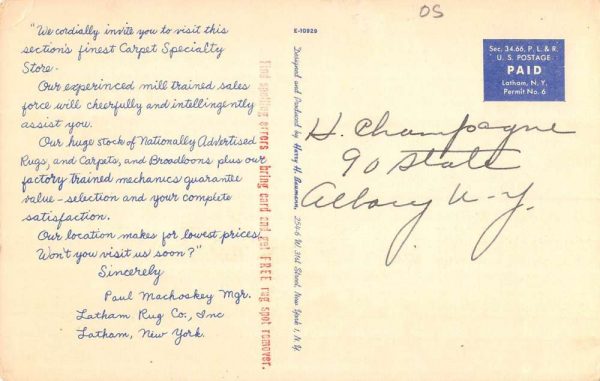 "We cordially invite you to visit this
section's finest Carpet Specialty
Store.
Our experinced mill trained sales
force will cheerfully and intellingently
assist you.
Our huge stock of Nationally Advertised
Rugs, and Carpets, and Broodloons plus our
factory trained mechanics guarantee
value-selection and your complete
satisfaction.
Our location makes for lowest prices!
Won't you visit us soon?"
Sincerely
Paul Machoskey Mgr.
Latham Rug Co., Inc
Latham, New York.
Find spelling errors - bring card and get FREE rug spot remover.
E-10929
Designed and Produced by Harry H. Baumann, 254-6 W. 31st Street, New York 1, N. Y.
OS
Sec. 34.66, P. L. & R.
U. S. POSTAGE
PAID
Latham, N. Y.
Permit No. 6
H. Champagne
90 State
Albany N-Y.